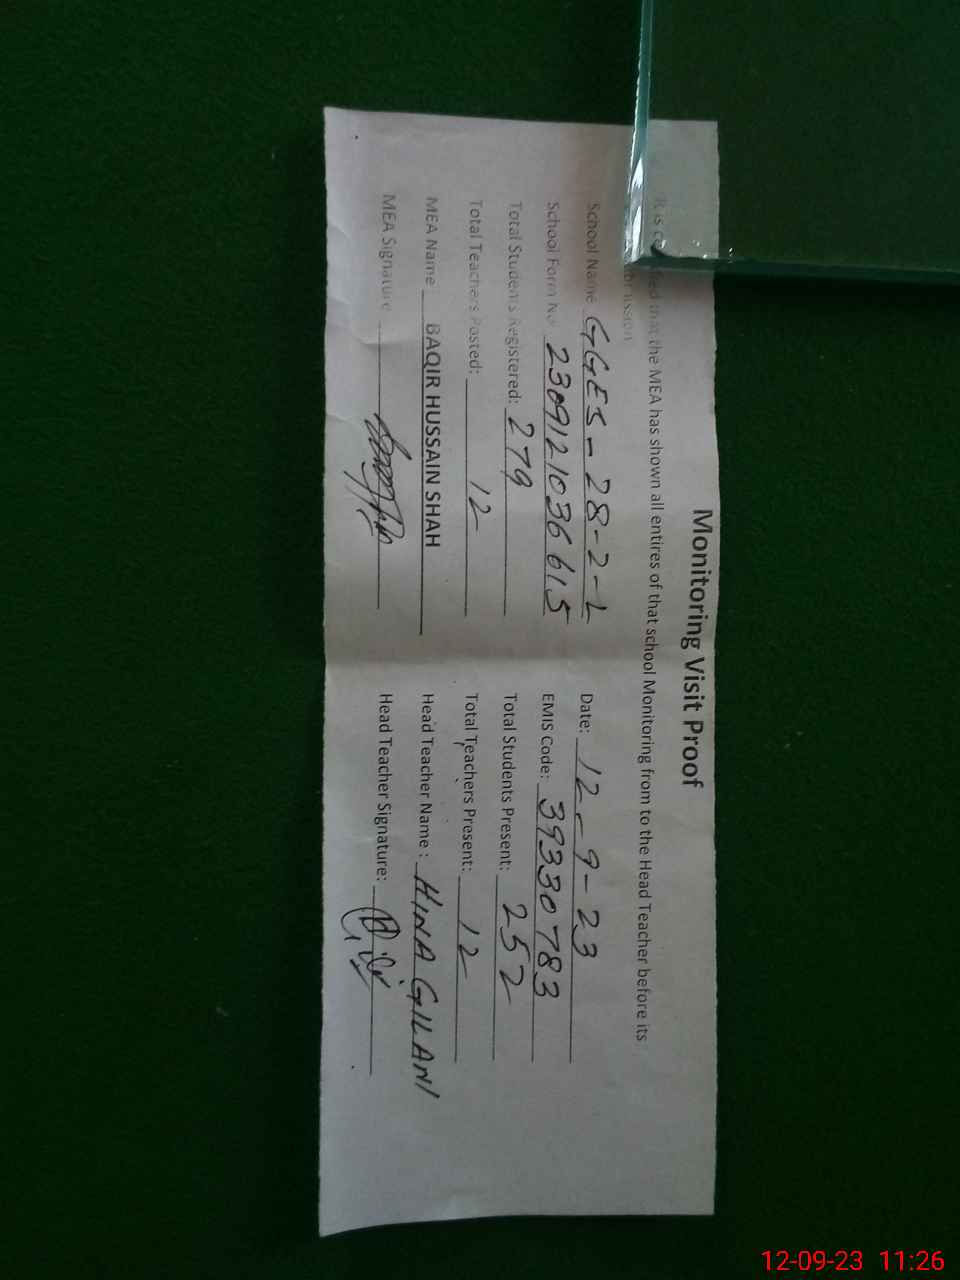 Monitoring Visit Proof
It is certified that the MEA has shown all entires of that school Monitoring from to the Head Teacher before its
School Name GGES-28-2-L Date: 12-9-23
School Form No 2309121036615 EMIS Code: 39330783
Total Students Registered: 279 Total Students Present: 252
Total Teachers Posted: 12 Total Teachers Present: 12
MEA Name BAQIR HUSSAIN SHAH Head Teacher Name : HINA GILANI
MEA Signature Head Teacher Signature:
12-09-23 11:26